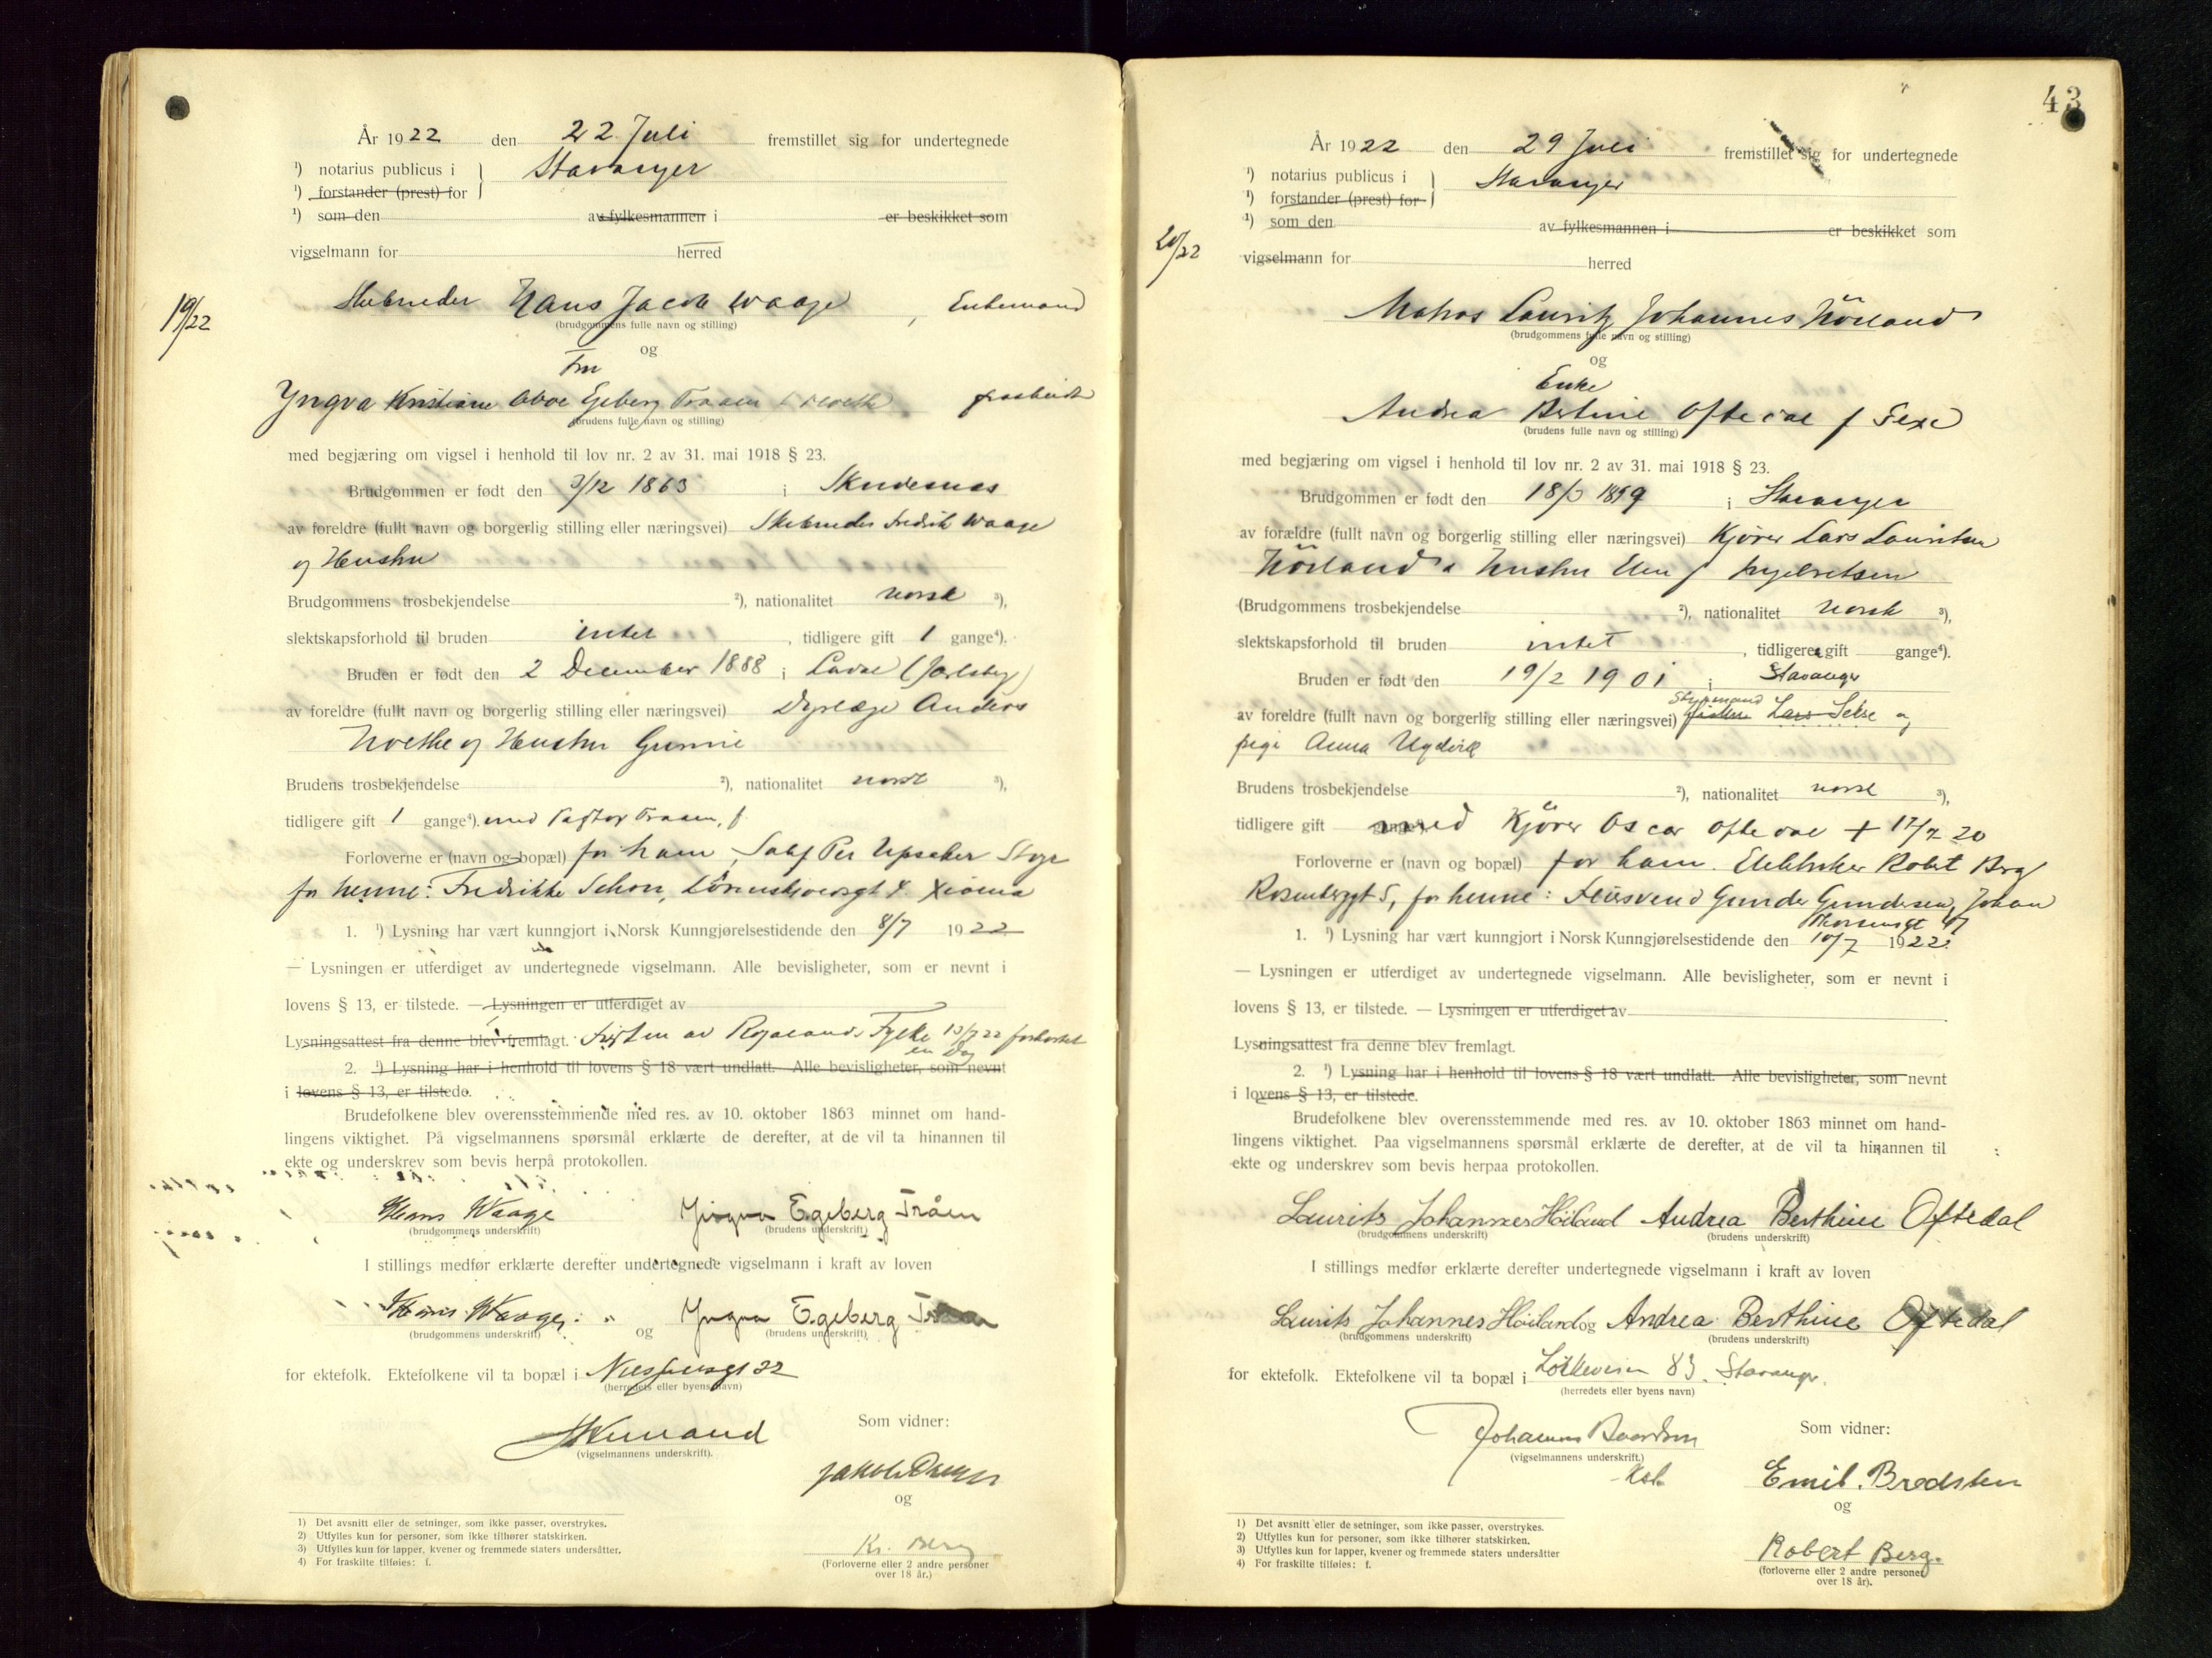 År 1922 den 22 Juli fremstillet sig for undertegnede
1) notarius publicus i Stavanger
1) forstander (prest) for
1) som den av fylkesmannen i er beskikket som
vigselmann for herred
19/22
Hans Jacob Waage, Enkemand
(brudgommens fulle navn og stilling)
og
Fru
Yngva Kristiane Egeberg Traaen fraskilt
(brudens fulle navn og stilling)
med begjæring om vigsel i henhold til lov nr. 2 av 31. mai 1918 § 23.
Brudgommen er født den 3/12 1863 i Skudesnes
av foreldre (fullt navn og borgerlig stilling eller næringsvei) Fredrik Waage
og Hustru
Brudgommens trosbekjendelse 2), nationalitet norsk 3),
slektskapsforhold til bruden intet, tidligere gift 1 gange4).
Bruden er født den 2 December 1888 i (Jarlsberg)
av foreldre (fullt navn og borgerlig stilling eller næringsvei) Dyrlæge Anders
og Hustru
Brudens trosbekjendelse 2), nationalitet norsk 3),
tidligere gift 1 gange4). med Pastor Traaen, f.
Forloverne er (navn og bopæl) for ham,
for henne: Fredrikke
1. 1) Lysning har vært kunngjort i Norsk Kunngjørelsestidende den 8/7 1922
— Lysningen er utferdiget av undertegnede vigselmann. Alle bevisligheter, som er nevnt i
lovens § 13, er tilstede. — Lysningen er utferdiget av
Lysningsattest fra denne blev fremlagt. Fristen av Rogalands Fylke 13/7 22 forkortet
en Dag
2. 1) Lysning har i henhold til lovens § 18 vært undlatt. Alle bevisligheter, som nevnt
i lovens § 13, er tilstede.
Brudefolkene blev overensstemmende med res. av 10. oktober 1863 minnet om hand-
lingens viktighet. På vigselmannens spørsmål erklærte de derefter, at de vil ta hinannen til
ekte og underskrev som bevis herpå protokollen.
Hans Waage Yngva Egeberg Tråen
(brudgommens underskrift) (brudens underskrift)
I stillings medfør erklærte derefter undertegnede vigselmann i kraft av loven
Hans Waage og Yngva Egeberg Tråen
(brudgommens underskrift) (brudens underskrift)
for ektefolk. Ektefolkene vil ta bopæl i 22
(herredets eller byens navn)
Som vidner:
(vigselmannens underskrift).
og
Kr. Berg
(Forloverne eller 2 andre personer
over 18 år.)
1) Det avsnitt eller de setninger, som ikke passer, overstrykes.
2) Utfylles kun for personer, som ikke tilhører statskirken.
3) Utfylles kun for lapper, kvener og fremmede staters undersåtter.
4) For fraskilte tilføies: f.
43
År 1922 den 29 Juli fremstillet sig for undertegnede
1) notarius publicus i Stavanger
1) forstander (prest) for
1) som den av fylkesmannen i er beskikket som
20/22
vigselmann for herred
Matros Lauritz Johannes Höiland
(brudgommens fulle navn og stilling)
og
Enke
Andrea Bertine Oftedal f
(brudens fulle navn og stilling)
med begjæring om vigsel i henhold til lov nr. 2 av 31. mai 1918 § 23.
Brudgommen er født den i Stavanger
av forældre (fullt navn og borgerlig stilling eller næringsvei) Kjører Lars Lauritsen
Höiland & Hustru f
(Brudgommens trosbekjendelse 2), nationalitet norsk 3),
slektskapsforhold til bruden intet, tidligere gift gange4).
Bruden er født den 19/2 1901 i Stavanger
Styrmand
av foreldre (fullt navn og borgerlig stilling eller næringsvei) Lars Sekse og
pige Anna
Brudens trosbekjendelse 2), nationalitet norsk 3),
tidligere gift gange4) med Kjører Oscar Oftedal + 17/7 20
Forloverne er (navn og bopæl) for ham. Elektriker Robert Berg
Rosenberggt 5, for henne: Gunder Gundersen, Johan
Thorsensgt
1. 1) Lysning har vært kunngjort i Norsk Kunngjørelsestidende den 10/7 1922.
— Lysningen er utferdiget av undertegnede vigselmann. Alle bevisligheter, som er nevnt i
lovens § 13, er tilstede. — Lysningen er utferdiget av
Lysningsattest fra denne blev fremlagt.
2. 1) Lysning har i henhold til lovens § 18 vært undlatt. Alle bevisligheter, som nevnt
i lovens § 13, er tilstede.
Brudefolkene blev overensstemmende med res. av 10. oktober 1863 minnet om hand-
lingens viktighet. Paa vigselmannens spørsmål erklærte de derefter, at de vil ta hinannen til
ekte og underskrev som bevis herpaa protokollen.
Laurits Johannes Høiland Andrea Berthine Oftedal
(brudgommens underskrift) (brudens underskrift)
I stillings medfør erklærte derefter undertegnede vigselmann i kraft av loven
Laurits Johannes Høiland og Andrea Berthine Oftedal
(brudgommens underskrift) (brudens underskrift)
for ektefolk. Ektefolkene vil ta bopæl i Løkkeveien 83, Stavanger.
(herredets eller byens navn)
Johannes Som vidner:
(vigselmannens underskrift.)
Emil
og
Robert Berg.
(forloverne eller 2 andre personer
over 18 år).
1) Det avsnitt eller de setninger, som ikke passer, overstrykes.
2) Utfylles kun for personer, som ikke tilhører statskirken.
3) Utfylles kun for lapper, kvener og fremmede staters undersåtter
4) For fraskilte tilføies: f.